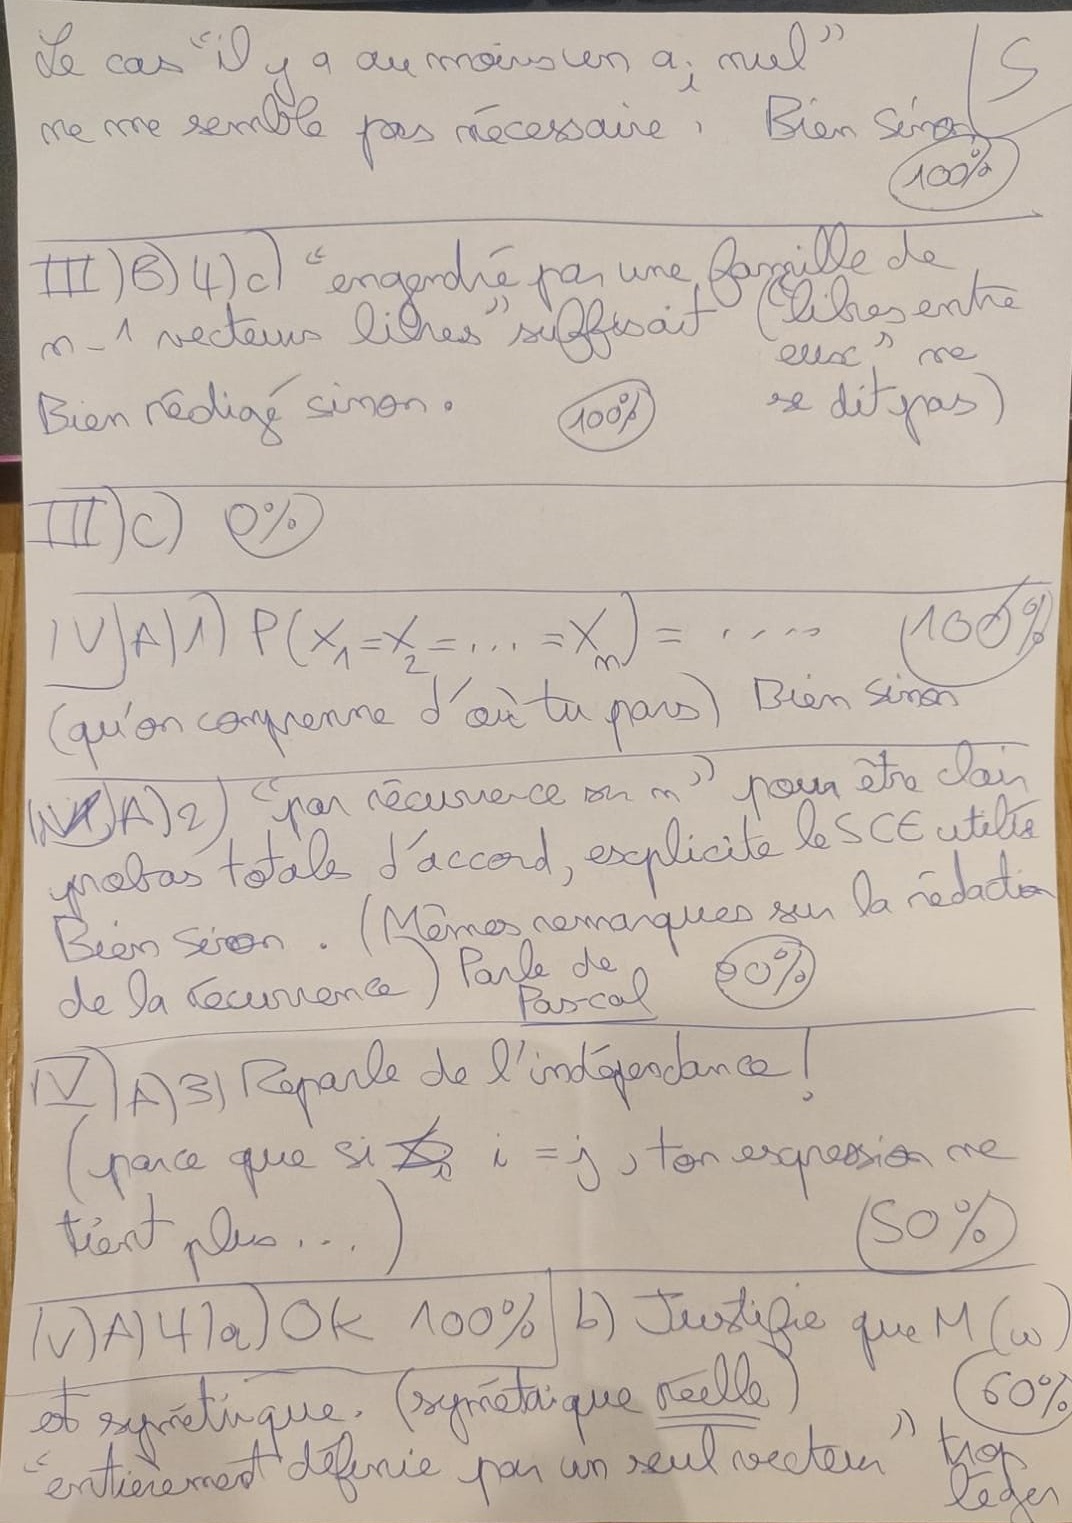 Le cas "il y a au moins un ai nul" 5
ne me semble pas nécessaire. Bien sinon
100%
III) B) 4) c) "engendré par une famille de
n-1 vecteurs libres" suffisait ("libres entre
eux" ne
Bien rédigé sinon. 100% se dit pas)
III) C) 0%
IV) A) 1) P(X1=X2=...=Xn) = ..... 100%
(qu'on comprenne d'où tu pars) Bien sinon
IV) A) 2) "par récurrence sur n" pour être clair
probas totales d'accord, explicite le SCE utilisé
Bien sinon. (Mêmes remarques sur la rédaction
de la récurrence) Parle de 90%
Pascal
IV) A) 3) Reparle de l'indépendance!
(parce que si i = j, ton expression ne
tient plus ...) 50%
IV) A) 4) a) Ok 100% b) Justifie que M(ω)
est symétrique. (symétrique réelle) 60%
"entièrement définie par un seul vecteur" trop
léger